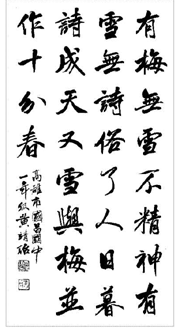 有梅無雪不精神有
雪無詩俗了人日暮
詩成天又雪與梅並
作十分春
高雄市國昌國中
一年級黃